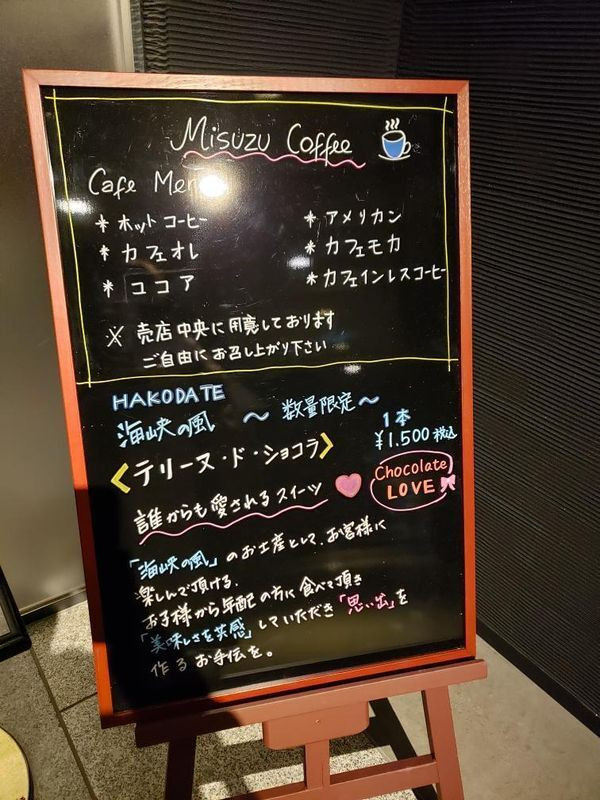 Misuzu Coffee
Cafe Menu
* ホットコーヒー
* アメリカン
* カフェオレ
* カフェモカ
* ココア
* カフェインレスコーヒー
※ 売店中央に用意しております
ご自由にお召し上がり下さい
HAKODATE
海峡の風 〜 数量限定 〜
1本
¥1,500税込
〈テリーヌ・ド・ショコラ〉
Chocolate
LOVE
誰からも愛されるスイーツ
「海峡の風」のお土産として、お客様に
楽しんで頂ける。
お子様から年配の方に食べて頂き
「美味しさを共感」していただき「思い出」を
作るお手伝を。